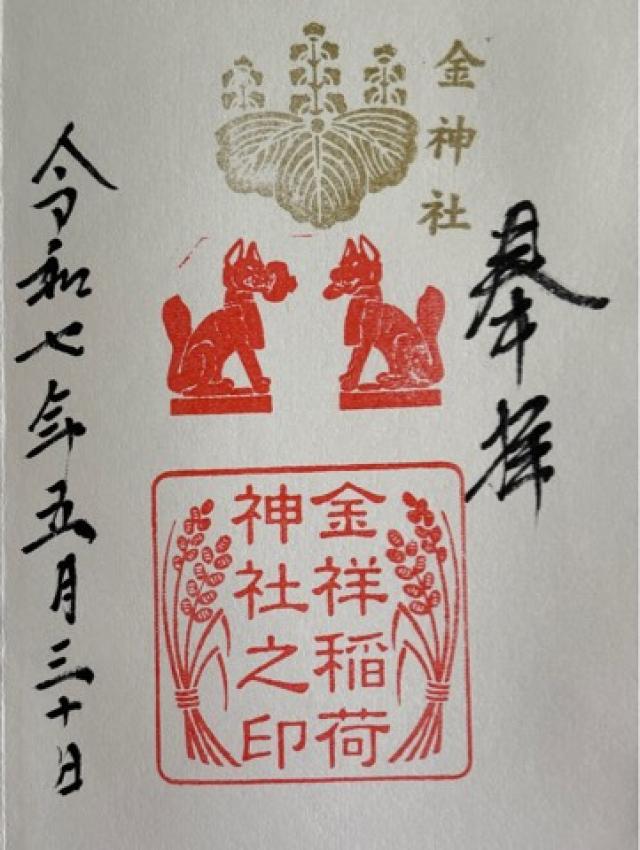 金神社
奉拝
金祥稲荷
神社之印
令和七年五月三十日